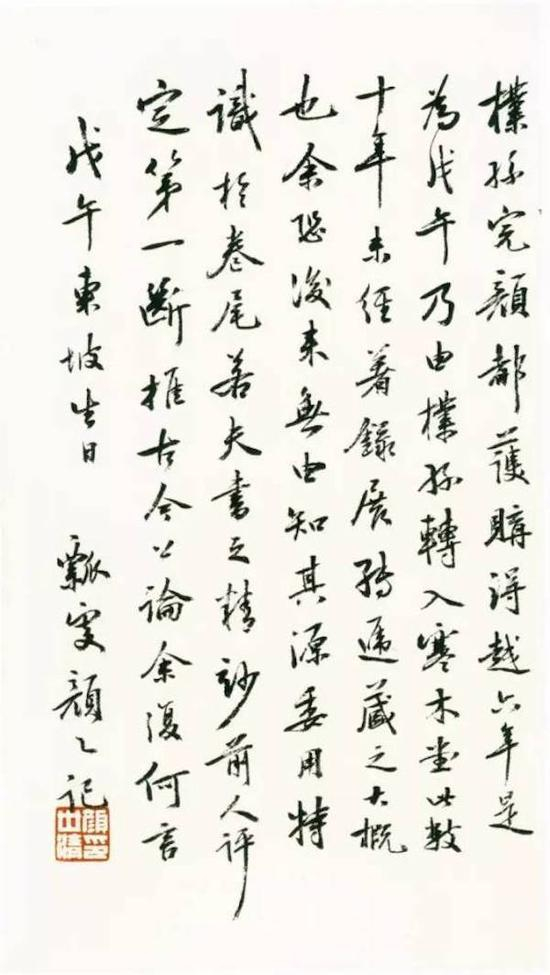 樸孫完顏都護購得越六年是
為戊午乃由樸孫轉入寒木堂此數
十年未經著錄展轉遞藏之大概
也余恐後來無由知其源委用特
識於卷尾若夫書之精玅前人評
定第一斷推古今公論余復何言
戊午東坡生日 瓢叟顏記
顏印世清